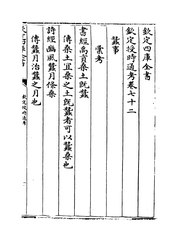 欽定四庫全書
欽定授時通考卷七十二
蠶事
彙考
書經禹貢桑土既蠶
傳桑土宜桑之土既蠶者可以蠶桑也
詩經豳風蠶月條桑
傳蠶月治蠶之月也